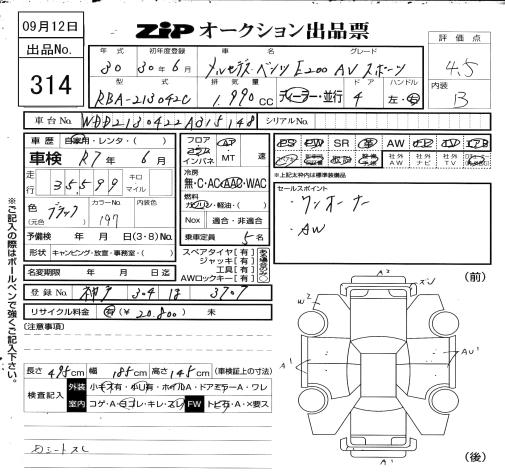 09月12日
ZIP オークション出品票
出品No.
314
年式 初年度登録 車名 グレード
30 30年6月 メルセデス・ベンツ E200 AV スポーツ
型式 排気量 ドア ハンドル
RBA-213042C 1.990cc ディーラー・並行 4 左・右
評価点
4.5
内装
B
車台No. WDD2130422A315148 シリアルNo.
車歴 自家用・レンタ・( )
車検 R7年 6月
走行 35,599 キロ マイル
色 (元色) ブラック カラーNo. 197 内装色
予備検 年 月 日(3・8)No.
形状 キャンピング・放送・事務室・( )
名変期限 年 月 日迄
フロア コラム インパネ AT MT 速
冷房
無・C・AC・AAC・WAC
燃料
ガソリン・軽油・( )
Nox 適合・非適合
乗車定員 5名
スペアタイヤ【有】
ジャッキ【有】
工具【有】
AWロックキー【有】
PS PW SR 革 AW ナビ TV
社外AW 社外ナビ 社外TV
※上記太枠内は標準装備品
セールスポイント
・ワンオーナー
・AW
登録No. 神戸 304 は 3707
リサイクル料金 有(¥ 20.800) 未
(注意事項)
長さ 495cm 幅 185cm 高さ 145cm (車検証上の寸法)
検査記入 外装 小キズ有・小U有・ホイルA・ドアミラーA・ワレ
室内 コゲ・A・ヨゴレ・キレ・スレ FW トビ石・A・×要ス
(前)
(後)
A2
W2
A1
AU1
A1
※ご記入の際はボールペンで強くご記入下さい。